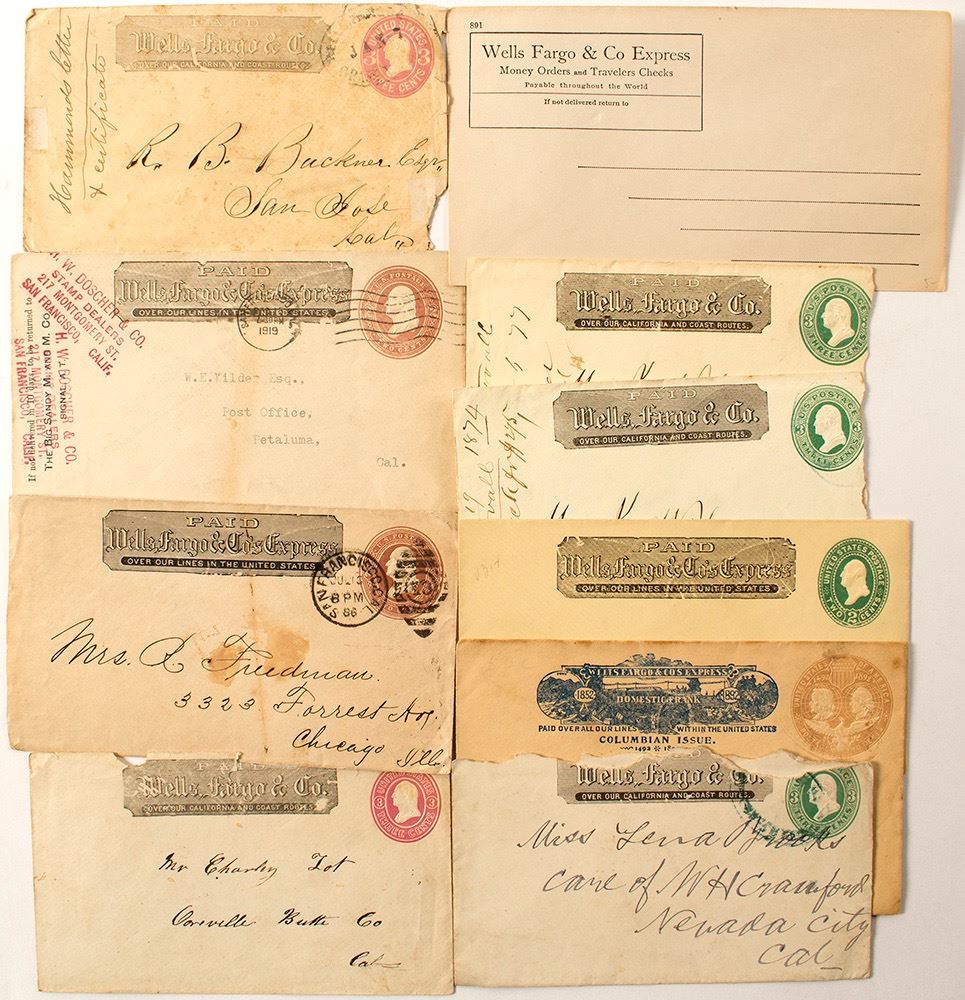 PAID
Wells, Fargo & Co.
OVER OUR CALIFORNIA AND COAST ROUTES.
UNITED STATES
3 3
THREE CENTS
Hammonds letter
& certificate
R. B. Buckner Esqr,
San Jose
Cal,
891
Wells Fargo & Co Express
Money Orders and Travelers Checks
Payable throughout the World
If not delivered return to
PAID
Wells, Fargo & Co's Express
OVER OUR LINES IN THE UNITED STATES
U.S. POSTAGE
TWO CENTS
1919
H. W. DOSCHER & CO.
STAMP DEALERS
217 MONTGOMERY ST.
SAN FRANCISCO, CALIF.
If not delivered in 10 days, to be returned to
THE BIG SANDY M. AND M. CO.
SIGNAL, A. T.
H. W. DOSCHER & CO.
STAMP DEALERS
217 MONTGOMERY ST.
SAN FRANCISCO, CALIF.
W.E.Wilder Esq.,
Post Office,
Petaluma,
Cal.
PAID
Wells, Fargo & Co.
OVER OUR CALIFORNIA AND COAST ROUTES.
U.S. POSTAGE
3 3
THREE CENTS
77
PAID
Wells, Fargo & Co.
OVER OUR CALIFORNIA AND COAST ROUTES.
U.S. POSTAGE
3 3
THREE CENTS
1874
PAID
Wells, Fargo & Co's Express
OVER OUR LINES IN THE UNITED STATES
SAN FRANCISCO, CAL.
JUL 13
8 PM
86
Mrs. R Friedman.
3323 Forrest Av.
Chicago
Ill.
PAID
Wells, Fargo & Co's Express
OVER OUR LINES IN THE UNITED STATES
UNITED STATES POSTAGE
2
TWO CENTS
WELLS FARGO & CO'S EXPRESS
1852 DOMESTIC FRANK 1892
PAID OVER ALL OUR LINES WITHIN THE UNITED STATES
COLUMBIAN ISSUE.
UNITED STATES OF AMERICA
1492 1892
PAID
Wells, Fargo & Co.
OVER OUR CALIFORNIA AND COAST ROUTES.
3 3
THREE CENTS
Mr Charley Lot
Oroville Butte Co
Cal
Wells, Fargo & Co.
OVER OUR CALIFORNIA AND COAST ROUTES.
THREE CENTS
Miss Lena Brooks
care of W H Crawford
Nevada City
Cal